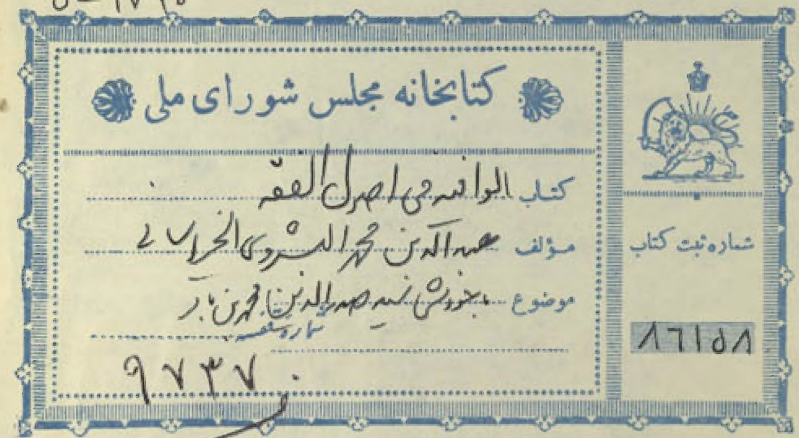 کتابخانه مجلس شورای ملی
کتاب الوافیه فی اصول الفقه
مؤلف عبدالله بن محمد البشروی الخراسانی
موضوع سید صدرالدین محمد بن
شماره قفسه
۹۷۳۷
شماره ثبت کتاب
۸۶۱۵۸